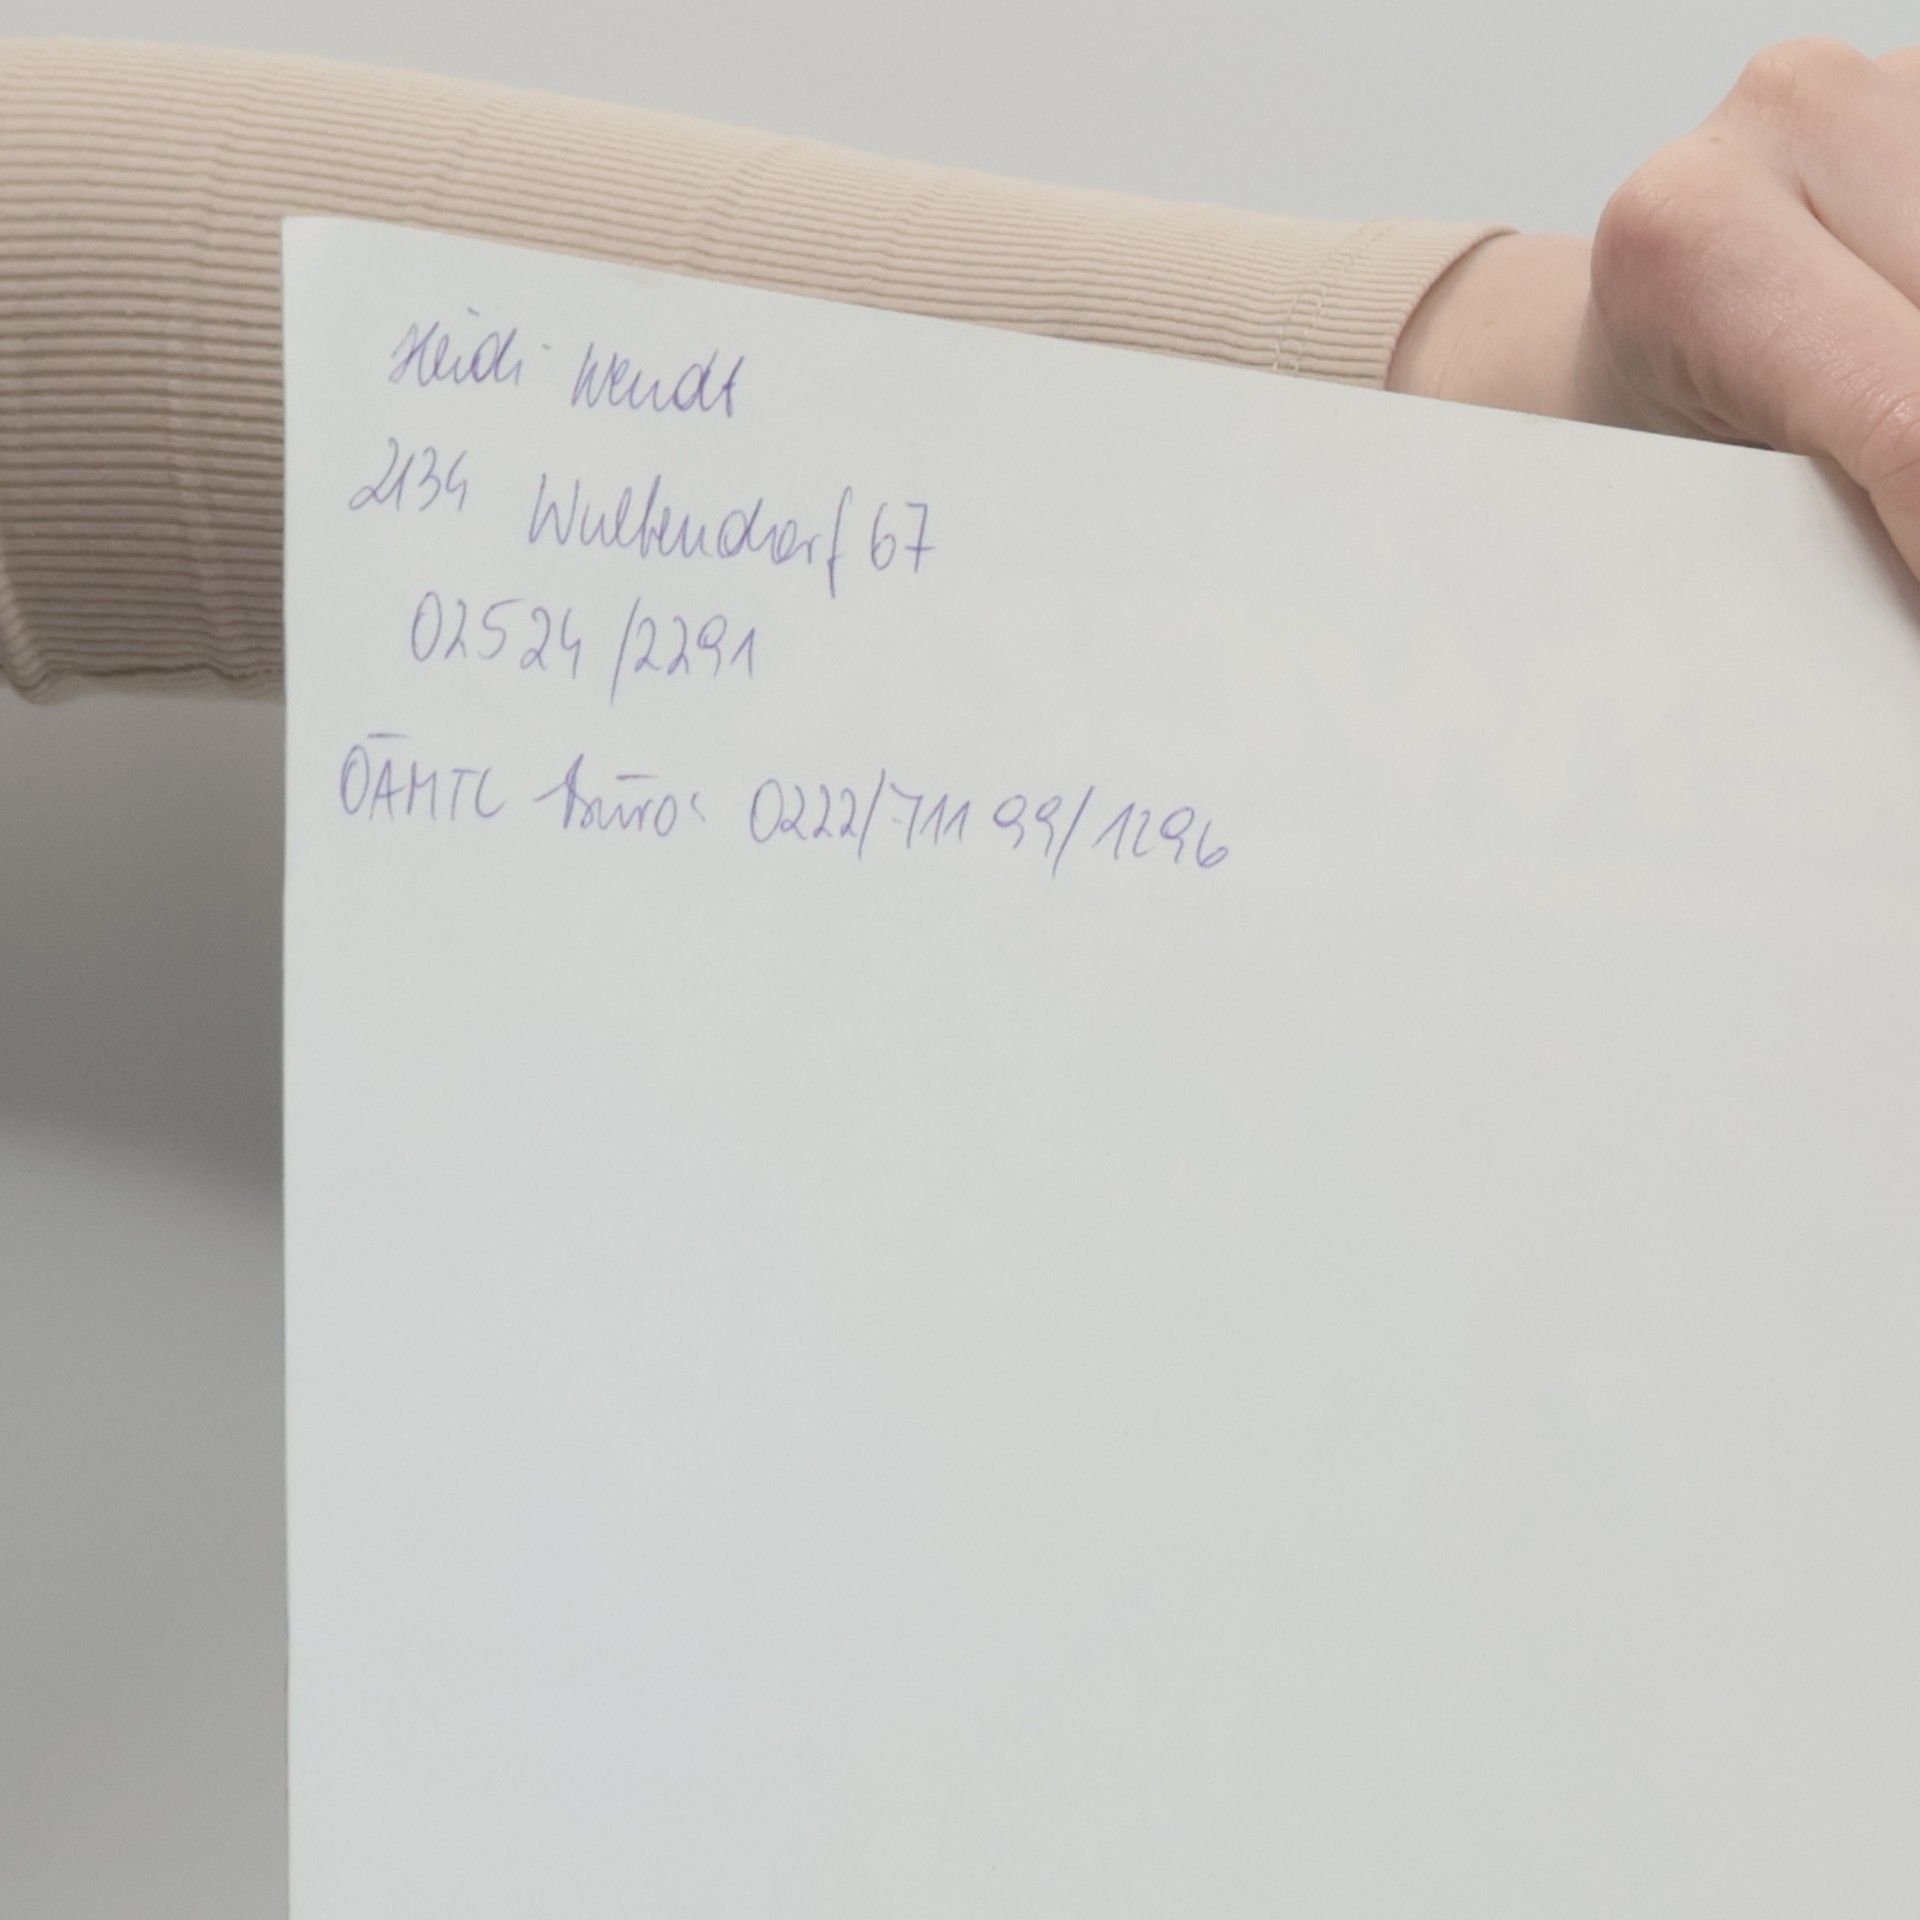 Heidi Wendt
2134 Wultendorf 67
02524/2291
ÖAMTC Büro: 0222/711 99/1296